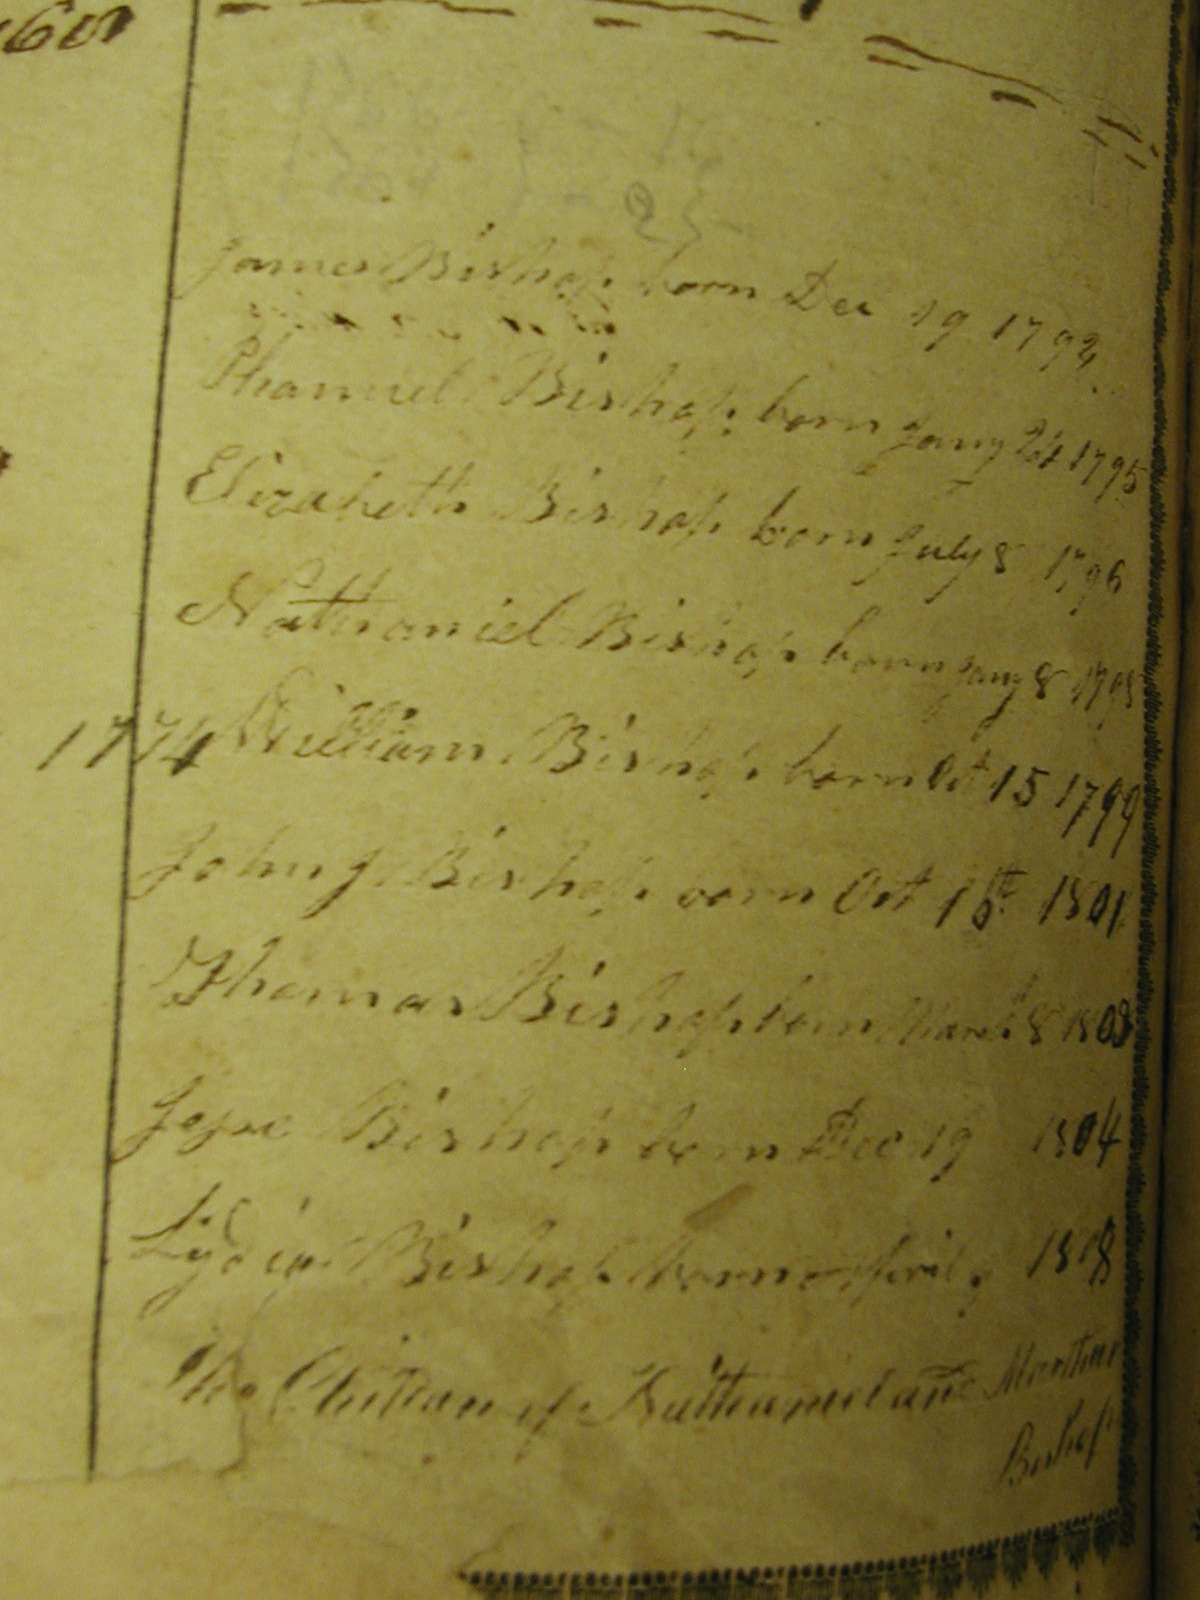 James Bishop born Dec 19 1792
Phanuel Bishop born Jany 24 1795
Elizabeth Bishop born July 8 1796
Nathaniel Bishop born Jany 8 1798
1774 William Bishop born Oct 15 1799
John J. Bishop born Oct 16th 1801
Thomas Bishop born March 8 1803
Jesse Bishop born Dec 19 1804
Lydia Bishop born April 9 1808
The Children of Nathaniel and Martha
Bishop